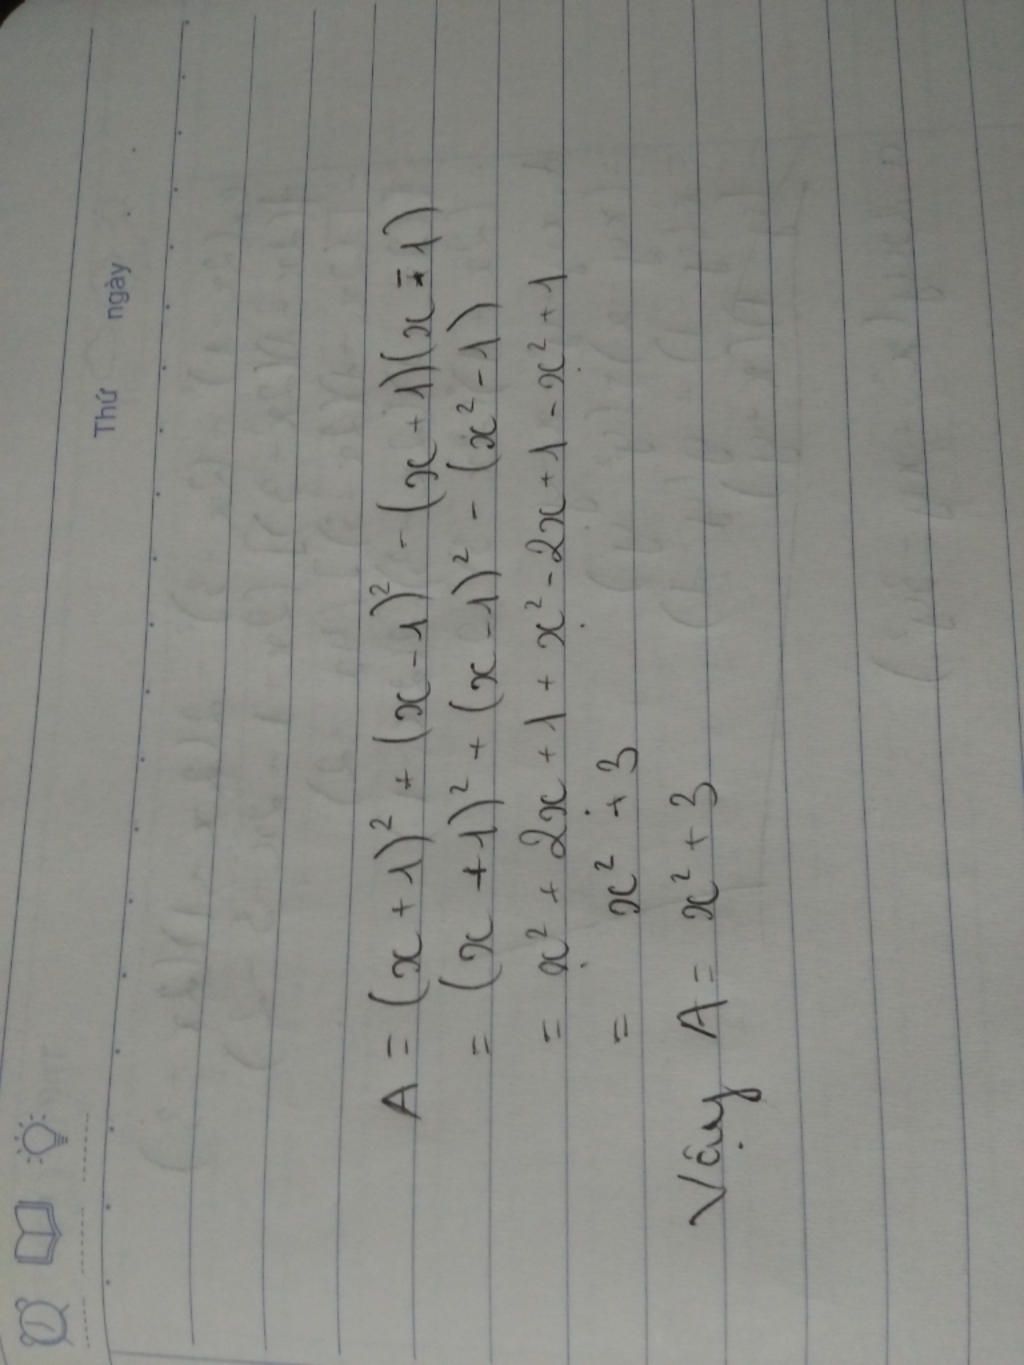 Thứ ngày
A = (x + 1)² + (x - 1)² - (x + 1)(x - 1)
= (x + 1)² + (x - 1)² - (x² - 1)
= x² + 2x + 1 + x² - 2x + 1 - x² + 1
= x² + 3
Vậy A = x² + 3